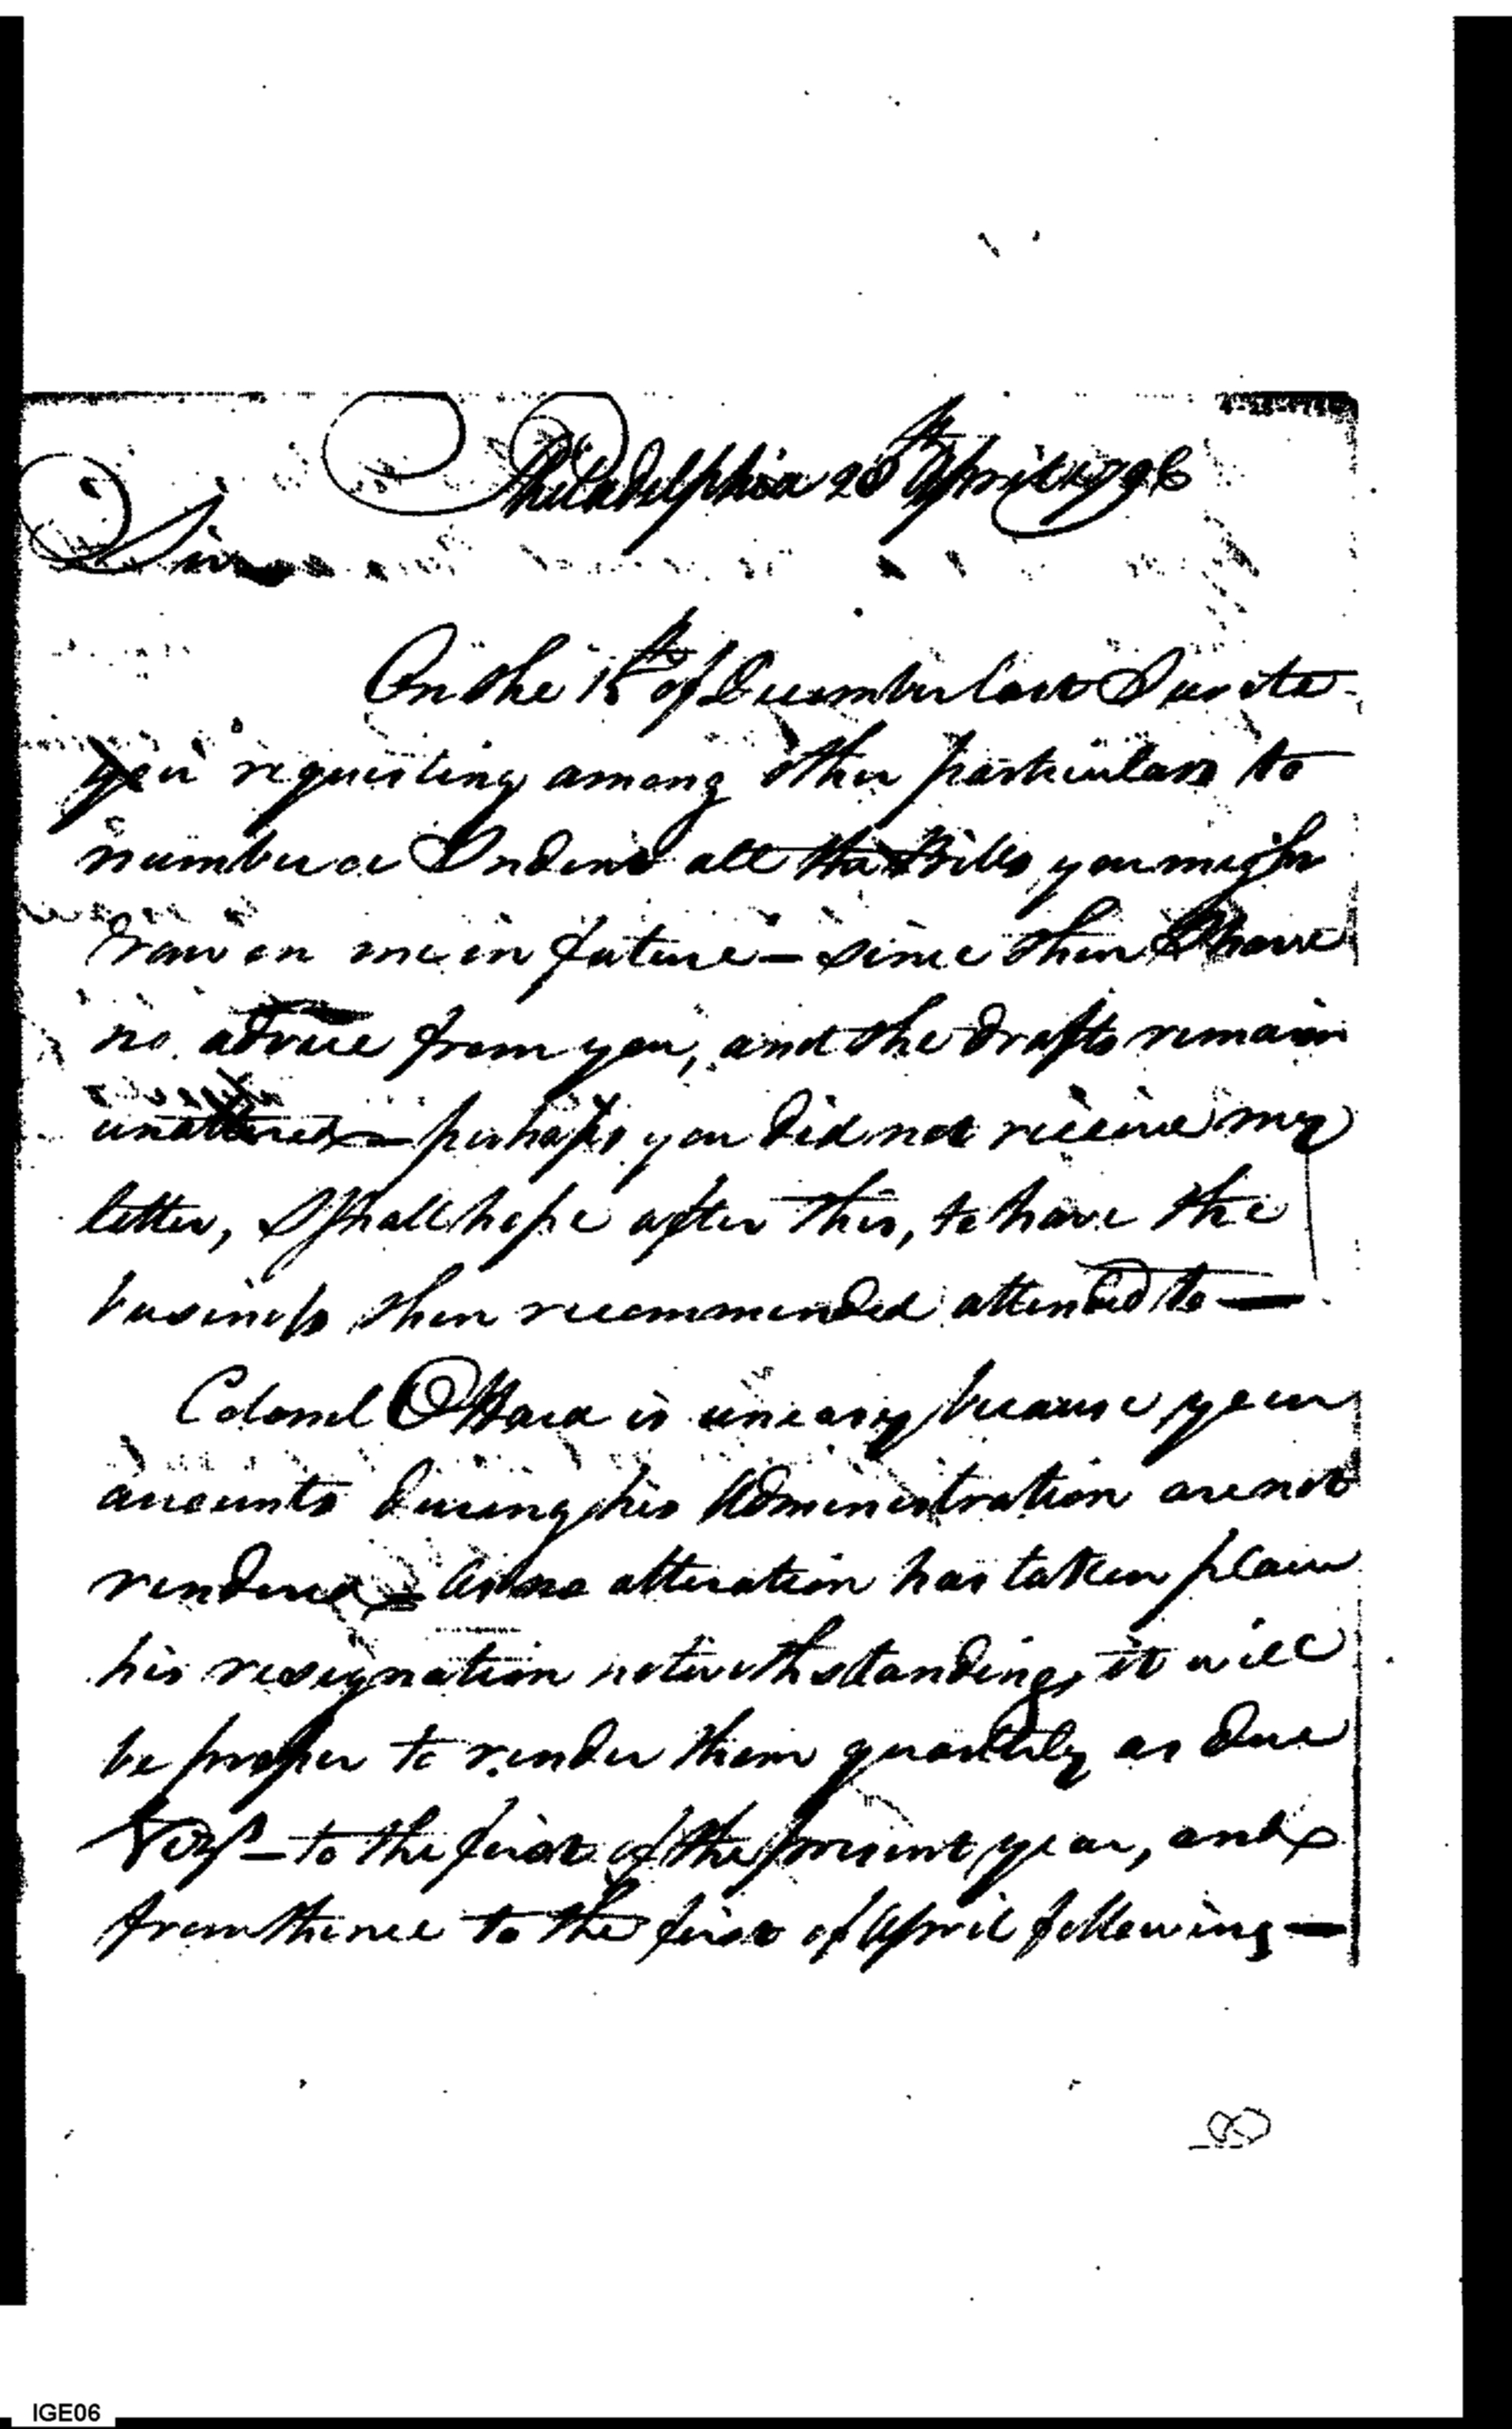 Philadelphia 28th April 1796
Sir
On the 15th of December last I wrote
you requesting among other particulars to
number & Indent all the Bills you might
draw on me in future — since then I have
no advice from you, and the drafts remain
unaltered — perhaps you did not receive my
letter, I shall hope after this, to have the
business then recommended attended to —
Colonel O'Hara is uneasy because your
accounts during his Administration are not
rendered — As no alteration has taken place
his resignation notwithstanding, it will
be proper to render them quarterly as due
— to the first of the present year, and
from thence to the first of April following —
IGE06